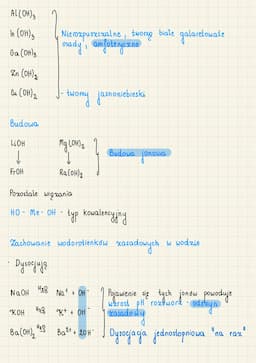 Al(OH)₃
In(OH)₃
Ga(OH)₃
Zn(OH)₂
Cu(OH)₂
Nierozpuszczalne, tworzą białe galaretowate
osady, amfoteryczne
- tworzy jasnoniebieski
Budowa
LiOH Mg(OH)₂
↓ ↓ Budowa jonowa
FrOH Ra(OH)₂
Pozostałe wiązania
HO - Me - OH - typ kowalencyjny
Zachowanie wodorotlenków zasadowych w wodzie
· Dysocjują
NaOH H₂O Na⁺ + OH⁻ Pojawienie się tych jonów powoduje
wzrost pH roztworu - odczyn
KOH H₂O K⁺ + OH⁻ zasadowy
Ba(OH)₂ H₂O Ba²⁺ + 2OH⁻ Dysocjacja jednostopniowa "na raz"